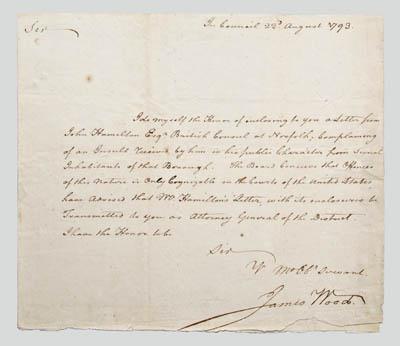 In Council 22d August 1793.
Sir
I do myself the Honor of enclosing to you a Letter from
John Hamilton Esqr. British Consul at Norfolk, Complaining
of an Insult received by him in his public Character from Several
Inhabitants of that Borough. The Board Conceive that Offences
of this Nature is Only Cognizable in the Courts of the United States
have Advised that Mr. Hamilton's Letter, with its enclosures be
Transmitted to you as Attorney General of the District.
I have the Honor to be
Sir
Yr. Mo Obt. Servant
James Wood.